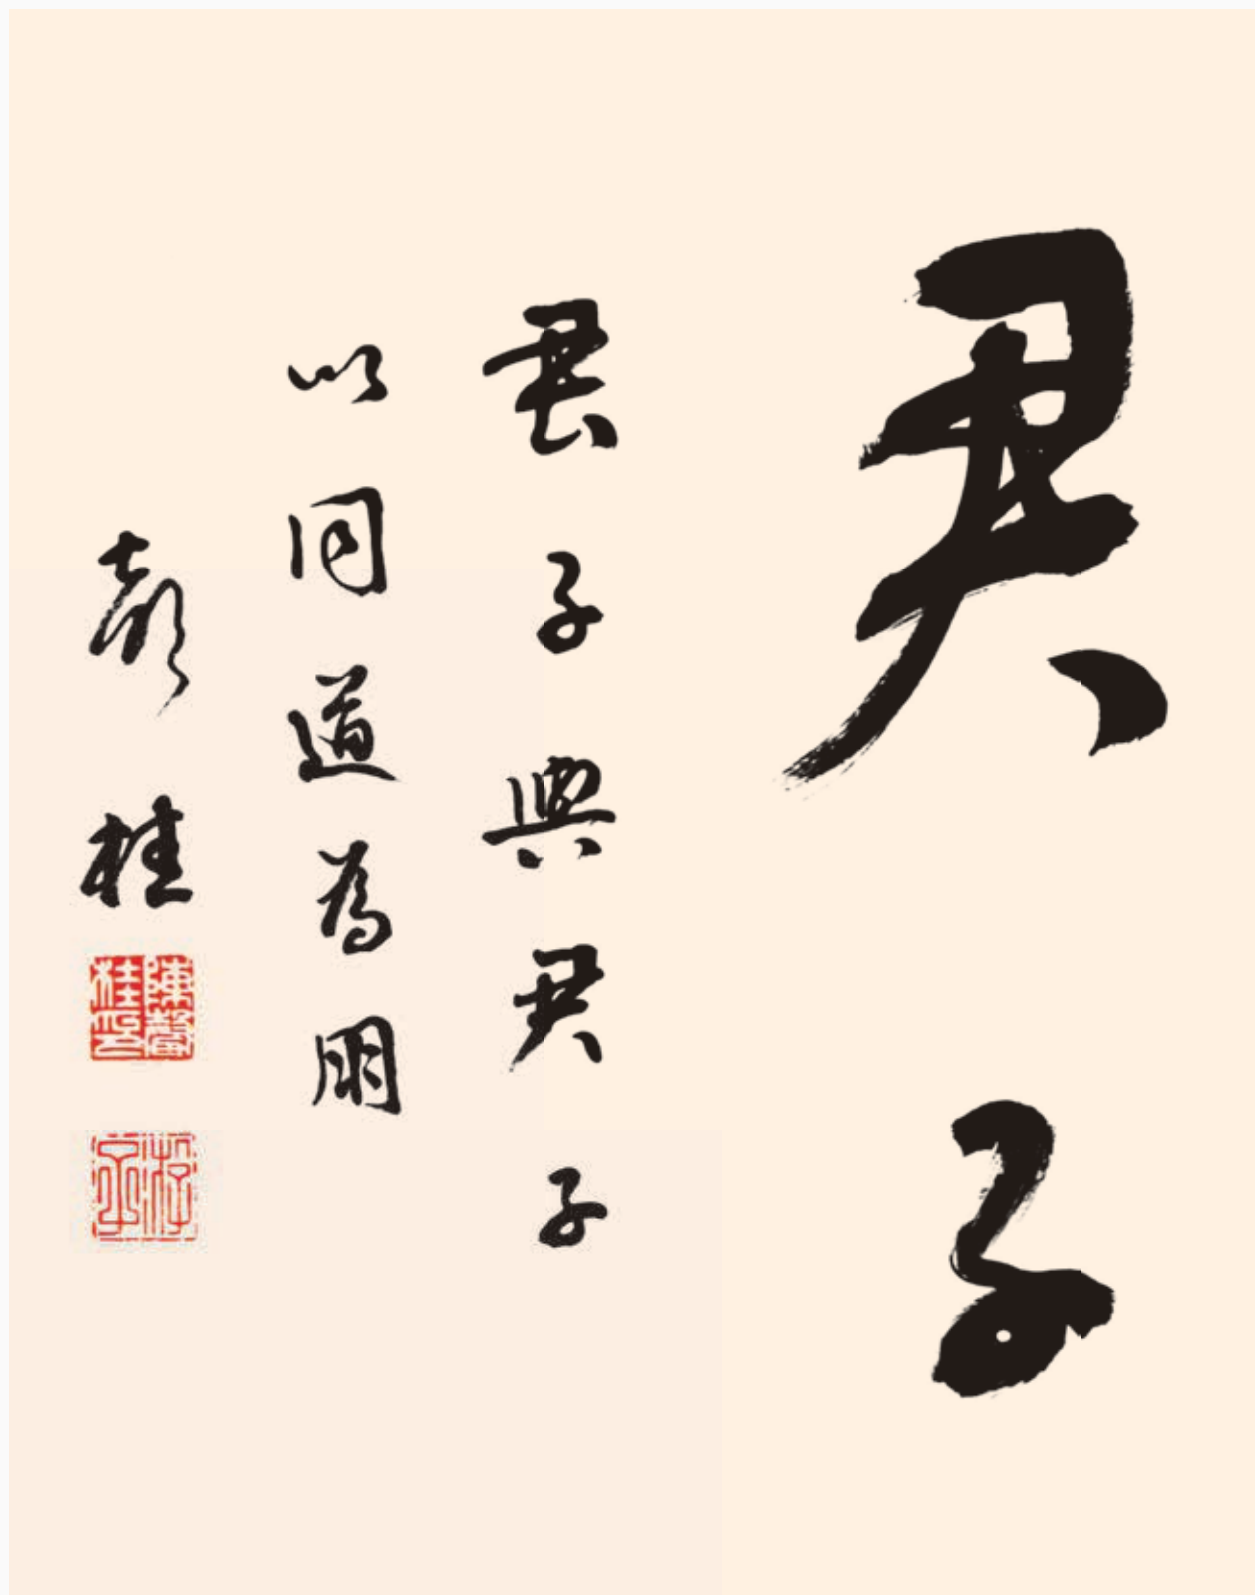 君子
君子與君子
以同道為朋
聲桂
陳聲桂印